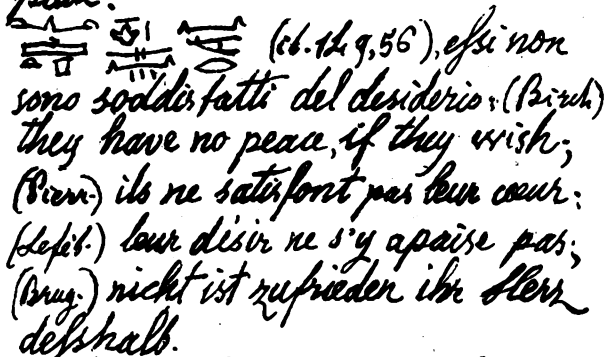 (ib. 1h 9,56), essi non
sono soddisfatti del desiderio: (Birch)
they have no peace, if they wish;
(Pierr.) ils ne satisfont pas leur cœur;
(Leféb.) leur désir ne s'y apaise pas;
(Brug.) nicht ist zufrieden ihr Herz
desshalb.